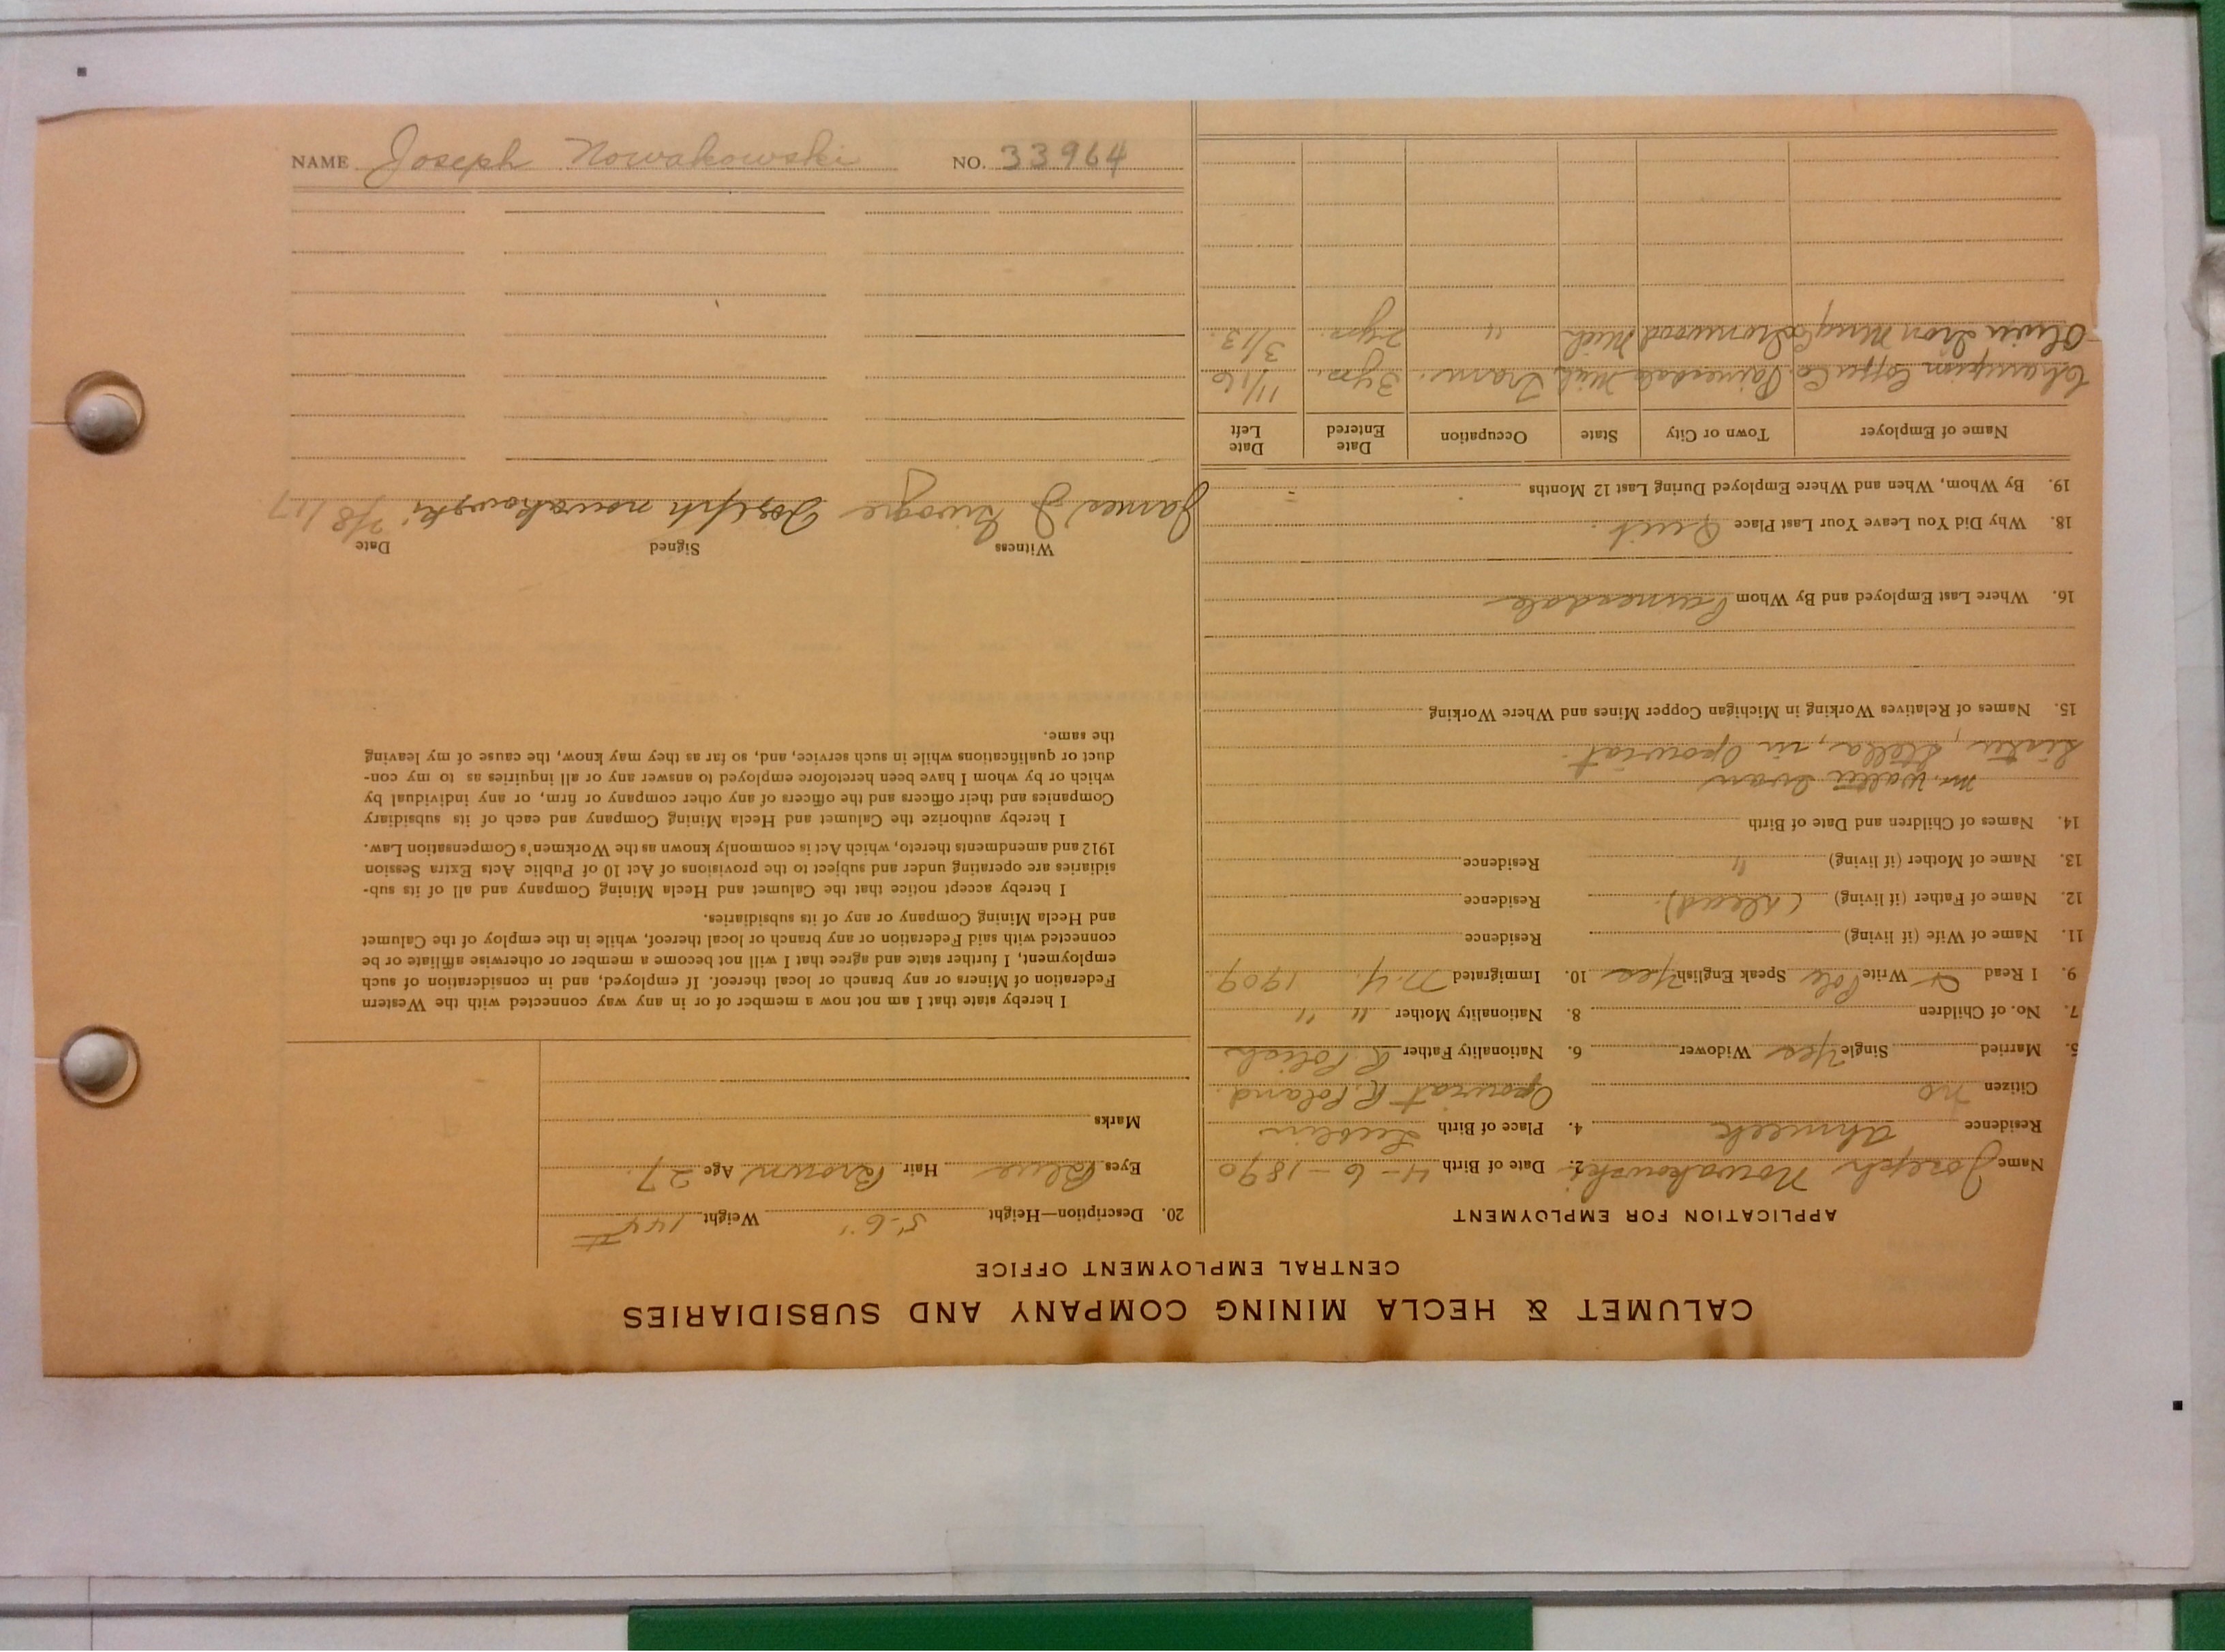 CALUMET & HECLA MINING COMPANY AND SUBSIDIARIES
CENTRAL EMPLOYMENT OFFICE
APPLICATION FOR EMPLOYMENT
Name Joseph Nowakowski 2. Date of Birth 4-6-1890
Residence Ahmeek 4. Place of Birth Lublin
Citizen no Opowiat R. Poland.
5. Married Single Yes Widower 6. Nationality Father R. Polish
7. No. of Children 8. Nationality Mother " "
9. I Read & Write Pole Speak English Yes 10. Immigrated N.Y. 1909
11. Name of Wife (if living) Residence
12. Name of Father (if living) (dead). Residence
13. Name of Mother (if living) " Residence
14. Names of Children and Date of Birth
Mr.
Sister, Stella, in Opowiat.
15. Names of Relatives Working in Michigan Copper Mines and Where Working
16. Where Last Employed and By Whom Painesdale
18. Why Did You Leave Your Last Place Quit.
19. By Whom, When and Where Employed During Last 12 Months
Name of Employer Town or City State Occupation Date Entered Date Left
Champion Copper Co. Painesdale Mich. Tram. 3 yrs. 11/16
Oliver Iron Mng Co Ironwood Mich " 2 yrs. 3/13.
20. Description—Height 5'-6" Weight 144#
Eyes Blue Hair Brown Age 27.
Marks
I hereby state that I am not now a member of or in any way connected with the Western
Federation of Miners or any branch or local thereof. If employed, and in consideration of such
employment, I further state and agree that I will not become a member or otherwise affiliate or be
connected with said Federation or any branch or local thereof, while in the employ of the Calumet
and Hecla Mining Company or any of its subsidiaries.
I hereby accept notice that the Calumet and Hecla Mining Company and all of its sub-
sidiaries are operating under and subject to the provisions of Act 10 of Public Acts Extra Session
1912 and amendments thereto, which Act is commonly known as the Workmen's Compensation Law.
I hereby authorize the Calumet and Hecla Mining Company and each of its subsidiary
Companies and their officers and the officers of any other company or firm, or any individual by
which or by whom I have been heretofore employed to answer any or all inquiries as to my con-
duct or qualifications while in such service, and, so far as they may know, the cause of my leaving
the same.
Witness Signed Date
James J. Joseph nowakowski.
NAME Joseph Nowakowski NO. 33964